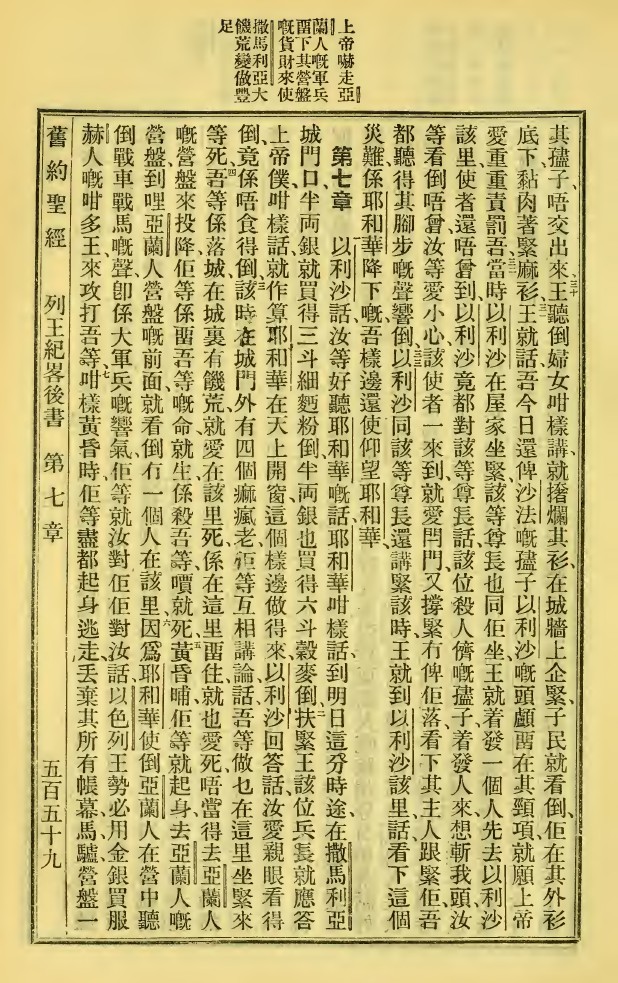 上帝嚇走亞
蘭人嘅軍兵
畱下其營盤
嘅貨財來使
撒馬利亞大
饑荒變做豐
足
其孻子唔交出來王聽倒婦女咁樣講就撦爛其衫在城牆上企緊子民就看倒佢在其外衫
底下黏肉著緊麻衫王就話吾今日還俾沙法嘅孻子以利沙嘅頭顱畱在其頸項就願上帝
愛重重責罰吾當時以利沙在屋家坐緊該等尊長也同佢坐王就着發一個人先去以利沙
該里使者還唔曾到以利沙竟都對該等尊長話該位殺人儕嘅孻子着發人來想斬我頭汝
等看倒唔曾汝等愛小心該使者一來到就愛閂門又撐緊冇俾佢落看下其主人跟緊佢吾
都聽得其腳步嘅聲響倒以利沙同該等尊長還講緊該時王就到以利沙該里話看下這個
災難係耶和華降下嘅吾樣邊還使仰望耶和華
第七章 以利沙話汝等好聽耶和華嘅話耶和華咁樣話到明日這旁時途在撒馬利亞
城門口半両銀就買得三斗細麪粉倒半両銀也買得六斗穀麥倒扶緊王該位兵長就應答
上帝僕咁樣話就作算耶和華在天上開窗這個樣邊做得來以利沙回答話汝愛親眼看得
倒竟係唔食得倒該時在城門外有四個痲瘋老佢等互相講論話吾等做乜在這里坐緊來
等死吾等係落城在城裏有饑荒就愛在該里死係在這里畱住就也愛死唔當得去亞蘭人
嘅營盤來投降佢等係畱吾等嘅命就生係殺吾等嘳就死黃昏晡佢等就起身去亞蘭人嘅
營盤到哩亞蘭人營盤嘅前面就看倒冇一個人在該里因爲耶和華使倒亞蘭人在營中聽
倒戰車戰馬嘅聲卽係大軍兵嘅響氣佢等就汝對佢佢對汝話以色列王勢必用金銀買服
赫人嘅咁多王來攻打吾等咁樣黃昏時佢等盡都起身逃走丢棄其所有帳幕馬驢營盤一
舊約聖經 列王紀畧後書 第七章 五百五十九